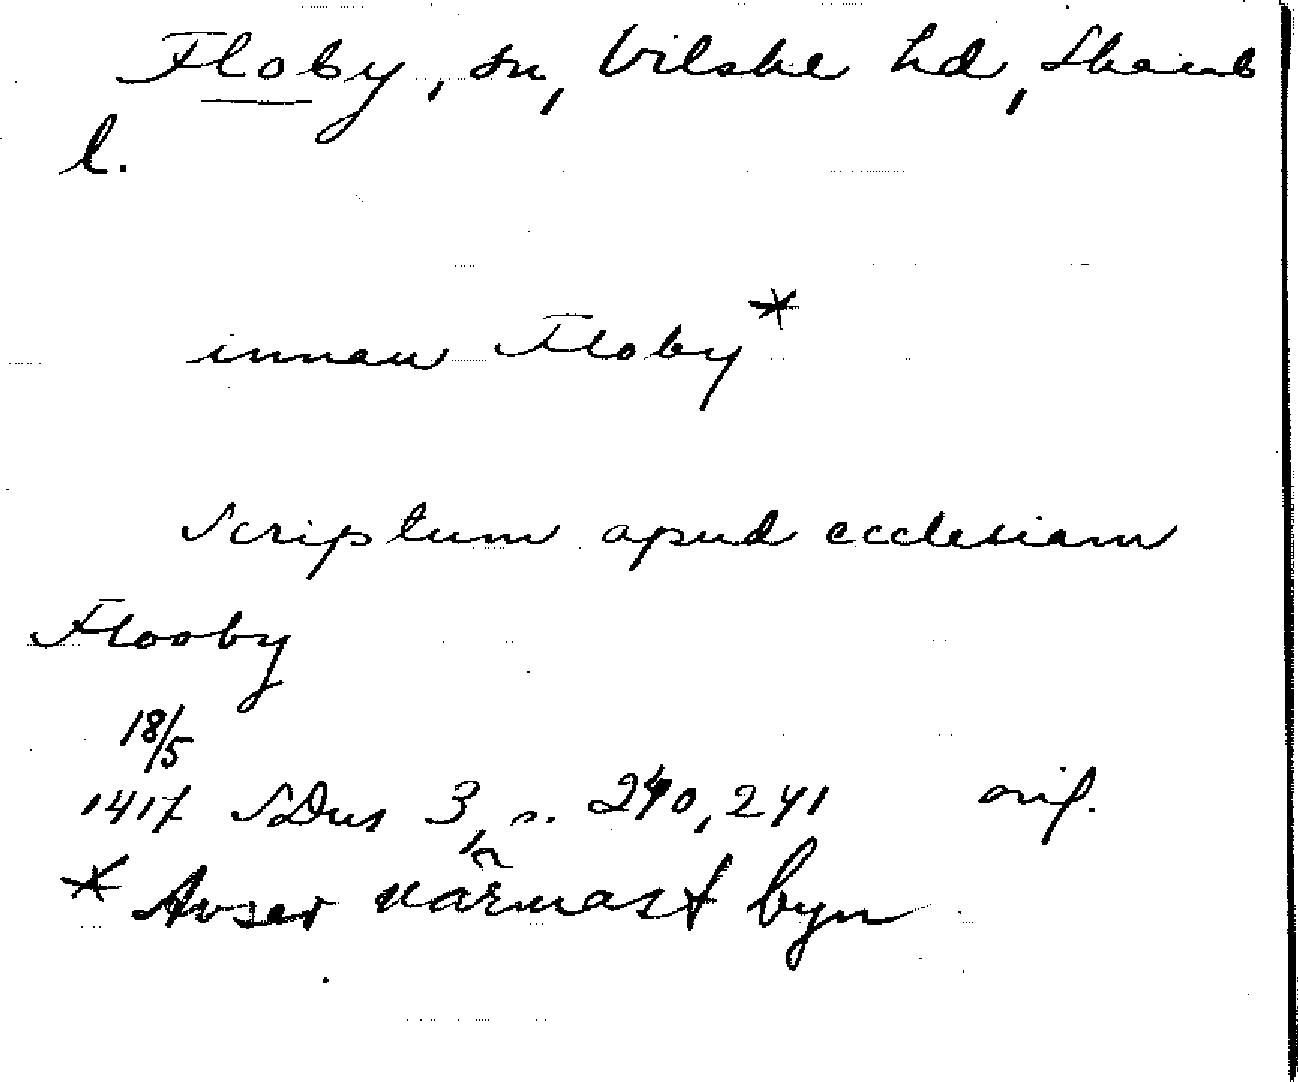 Floby, sn, Vilske hd, Skarab
l.
innan Floby*
Scriptum apud ecclesiam
Flooby
18/5
1417 SDns 3, s. 240, 241 orig.
* Avser närmast byn